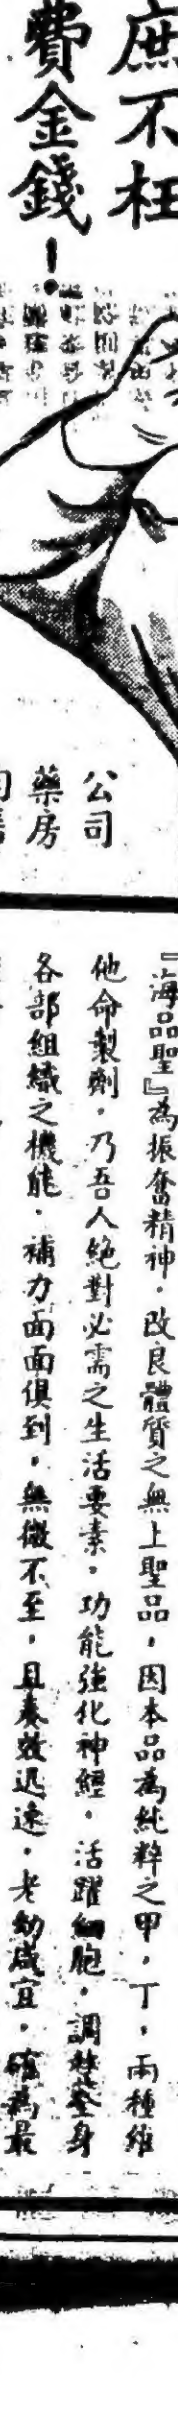 庶不枉
費金錢！
公司
藥房
『海品聖』為振奮精神．改良體質之無上聖品，因本品為純粹之甲．丁．兩種維
他命製劑．乃吾人絕對必需之生活要素．功能強化神經．活躍細胞．調整全身
各部組織之機能．補力面面俱到．無微不至．且奏效迅速．老幼咸宜．確為最